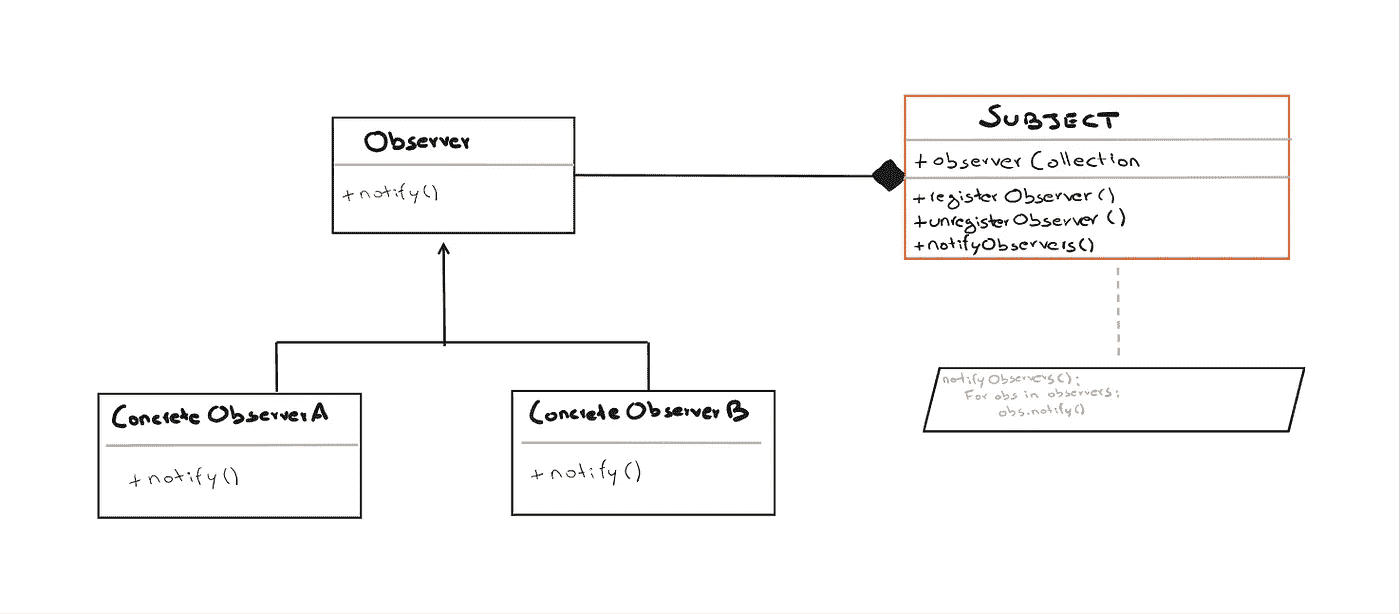 Observer
+notify()
SUBJECT
+ observer Collection
+register Observer()
+unregister Observer ()
+notifyObservers()
Concrete ObserverA
+notify()
Concrete ObserverB
+notify()
notify Observers():
For obs in observers:
obs.notify()